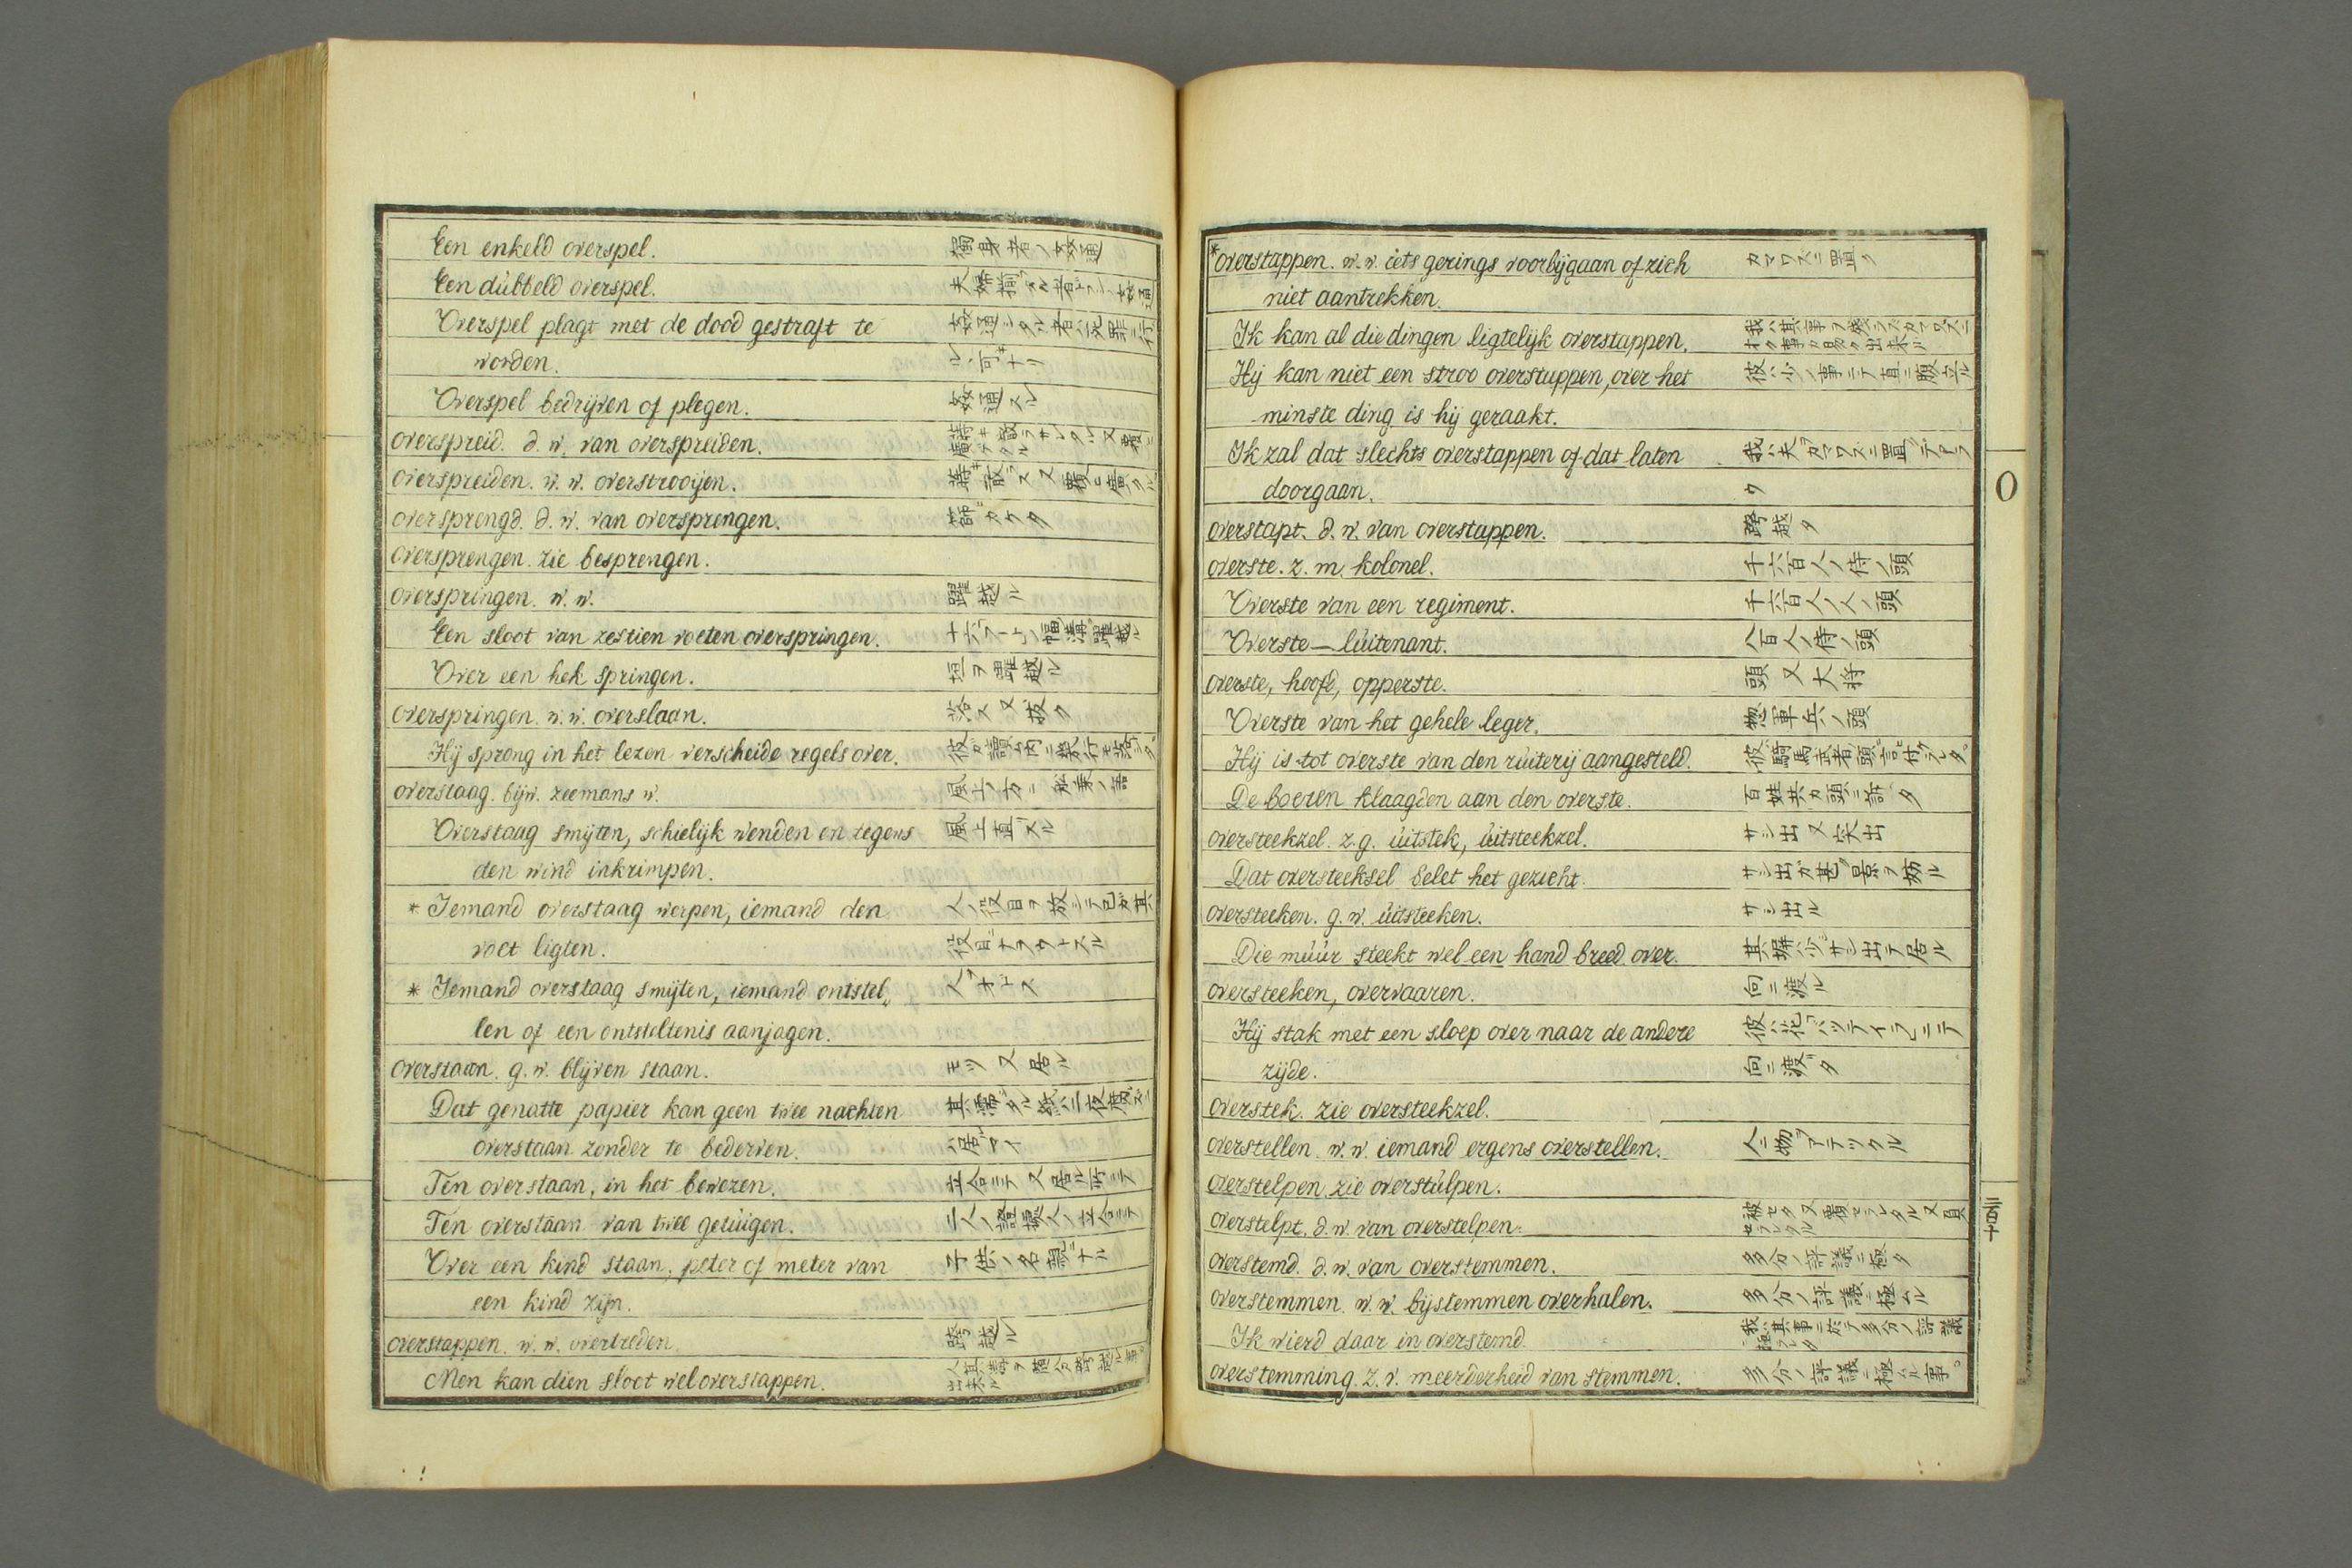 Een enkeld overspel. 獨身者ノ姦通
Een dúbbeld overspel. 夫婦揃タル者ドシノ姦通
Overspel plagt met de dood gestraft te 姦通シタル者ハ死罪ニ行
worden. ル可キナリ
Overspel bedrijven of plegen. 姦通スル
overspreid. d. w. van overspreiden.
overspreiden. w. w. overstrooijen.
oversprengd. d. w. van oversprengen.
oversprengen. zie besprengen.
overspringen. w. w.躍越ル
Een sloot van zestien voeten overspringen.
Over een hek springen. 垣ヲ躍越ル
overspringen. w. w. overslaan. 落ス又抜ク
Hij sprong in het lezen verscheide regels over.
overstaag. bijw. zeemans w. 風上ノ方ニ 船乗ノ語
Overstaag smijten, schielijk wenden en tegens 風上直スル
den wind inkrimpen.
* Iemand overstaag werpen, iemand den 人ノ役目ヲ放シテ己ガ其
voet ligten. 役目ニナラウトスル
* Iemand overstaag smijten, iemand ontstel„ 人ヲオドス
len of een ontsteltenis aanjagen.
overstaan. g. w. blijven staan. モツ 又 居ル
Dat genatte papier kan geen twee nachten
overstaan zonder te bederven.
Ten overstaan, in het bewezen. 立合ニテ 又 居ル所ニテ
Ten overstaan van twee getúigen. 二人ノ證據人ノ立合ニテ
Over een kind staan, peter of meter van 子供ノ名親ニナル
een kind zijn.
overstappen. w. w. overtreden. 跨越ル
Men kan dien sloot wel overstappen.
*overstappen. w. w. iets gerings voorbijgaan of zich カマワズニ置ク
niet aantrekken.
Ik kan al die dingen ligtelijk overstappen. 我ハ其事ヲ残ラズカマワズニ
オク事カ易ク出来ル
Hij kan niet een stroo overstuppen, over het 彼ハ少ノ事ニテ直ニ腹立ル
minste ding is hij geraakt.
Ik zal dat slechts overstappen of dat laten 我ハ夫ヲカマワズニ置テアラフ
doorgaan. ウ
overstapt. d. w. van overstappen. 跨越タ
overste. z. m. kolonel. 千六百人ノ侍ノ頭
Overste van een regiment. 千六百人ノ人ノ頭
Overste—lúitenant. 八百人ノ侍ノ頭
overste, hoofd, opperste. 頭 又 大将
Overste van het gehele leger. 惣軍兵ノ頭
Hij is tot overste van den rúiterij aangesteld. 彼ハ騎馬武者ノ頭ニ言付ラレタ
De boeren klaagden aan den overste. 百姓共カ頭ニ訴タ
oversteekzel. z. g. úitstek, úitsteekzel. サシ出 又 突出
Dat oversteeksel belet het gezicht. サシ出ガ甚ダ景ヲ妨ル
oversteeken. g. w. úitsteeken. サシ出ル
Die múúr steekt wel een hand breed over. 其塀ハ少シサシ出テ居ル
oversteeken, overvaaren. 向ニ渡ル
Hij stak met een sloep over naar de andere
zijde. 向ニ渡タ
overstek. zie oversteekzel.
overstellen. w. w. iemand ergens overstellen. 人ニ物ヲアテツクル
overstelpen, zie overstúlpen.
overstelpt. d. w. van overstelpen. 被セタ又覆セラレタル又員
セラレタル
overstemd. d. w. van overstemmen. 多分ノ評議ニ極タ
overstemmen. w. w. bijstemmen overhalen. 多分ノ評議ニ極ムル
Ik wierd daar in overstemd. 我ハ其事ニ於テ多分ノ評議
ニ極ラレタ
overstemming. z. v. meerderheid van stemmen. 多分ノ評議ニ極ル事
O